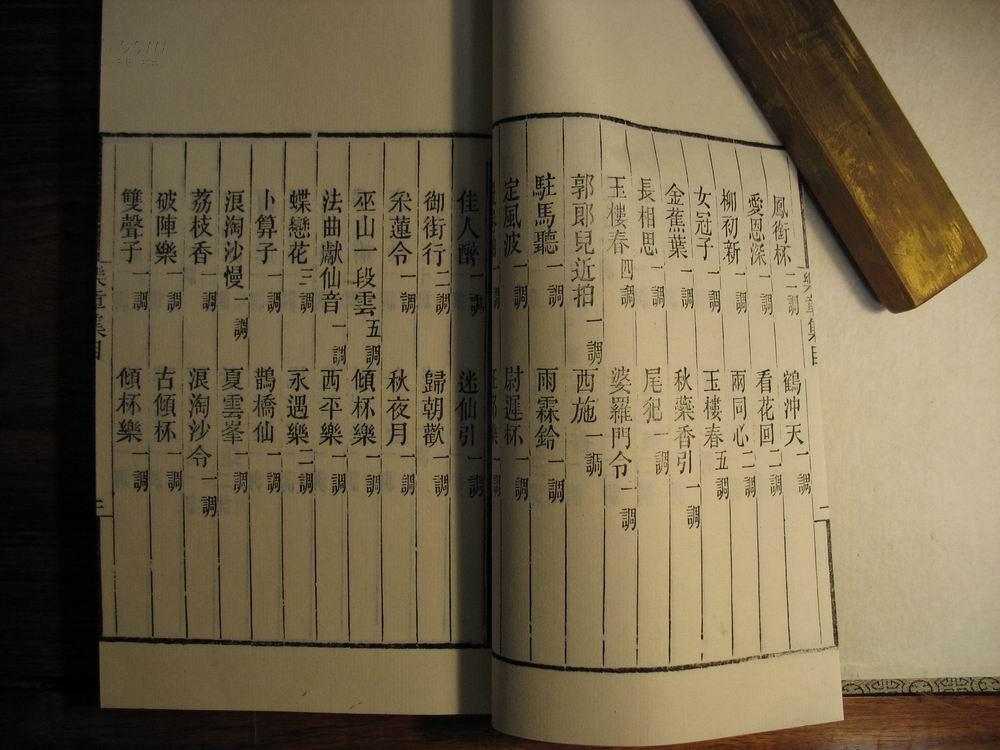 鳳銜杯二調 鶴沖天一調
愛恩深一調 看花回二調
柳初新一調 兩同心二調
女冠子一調 玉樓春五調
金蕉葉一調 秋蘂香引一調
長相思一調 尾犯一調
玉樓春四調 婆羅門令一調
郭郎兒近拍一調 西施一調
駐馬聽一調 雨霖鈴一調
定風波一調 尉遲杯一調
佳人醉一調 迷仙引一調
御街行二調 歸朝歡一調
采蓮令一調 秋夜月一調
巫山一段雲五調 傾杯樂一調
法曲獻仙音一調 西平樂一調
蝶戀花三調 永遇樂二調
卜算子一調 鵲橋仙一調
浪淘沙慢一調 夏雲峯一調
荔枝香一調 浪淘沙令一調
破陣樂一調 古傾杯一調
雙聲子一調 傾杯樂一調
樂章集目
樂章集目